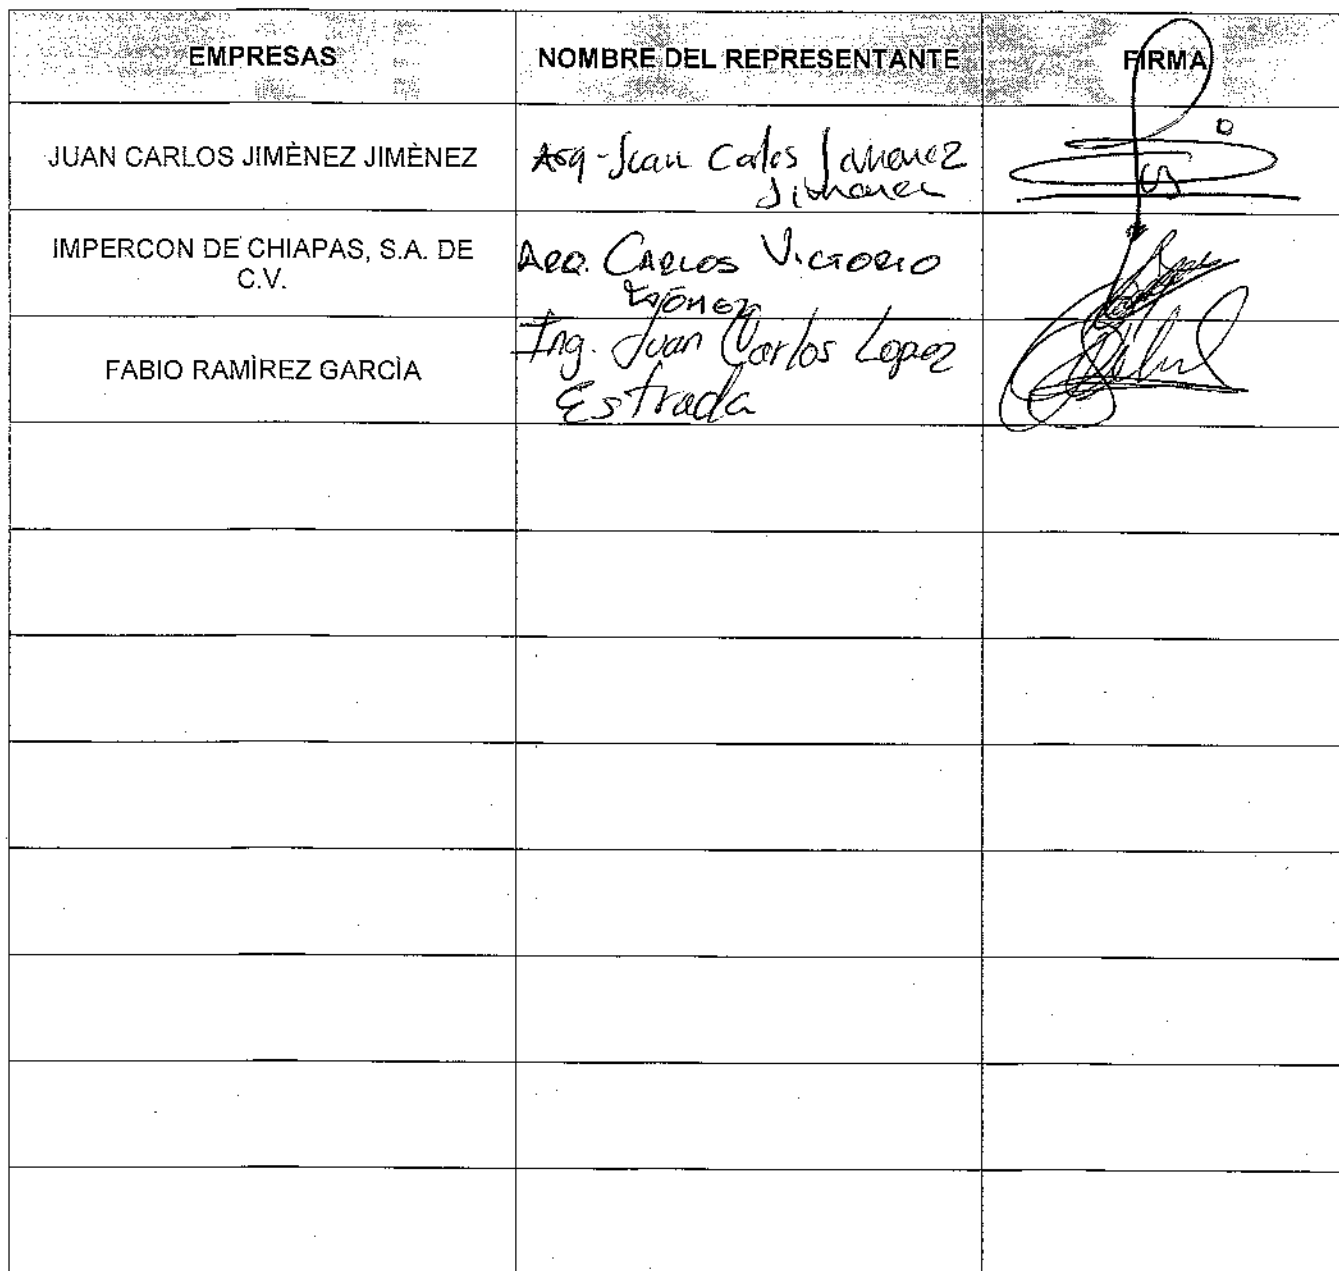 EMPRESAS NOMBRE DEL REPRESENTANTE FIRMA
JUAN CARLOS JIMÈNEZ JIMÈNEZ
Arq - Juan Carlos Jimenez
Jimenez
IMPERCON DE CHIAPAS, S.A. DE
C.V.
Arq. CARLOS VICTORIO
FABIO RAMÌREZ GARCÌA
Ing. Juan Carlos Lopez
Estrada